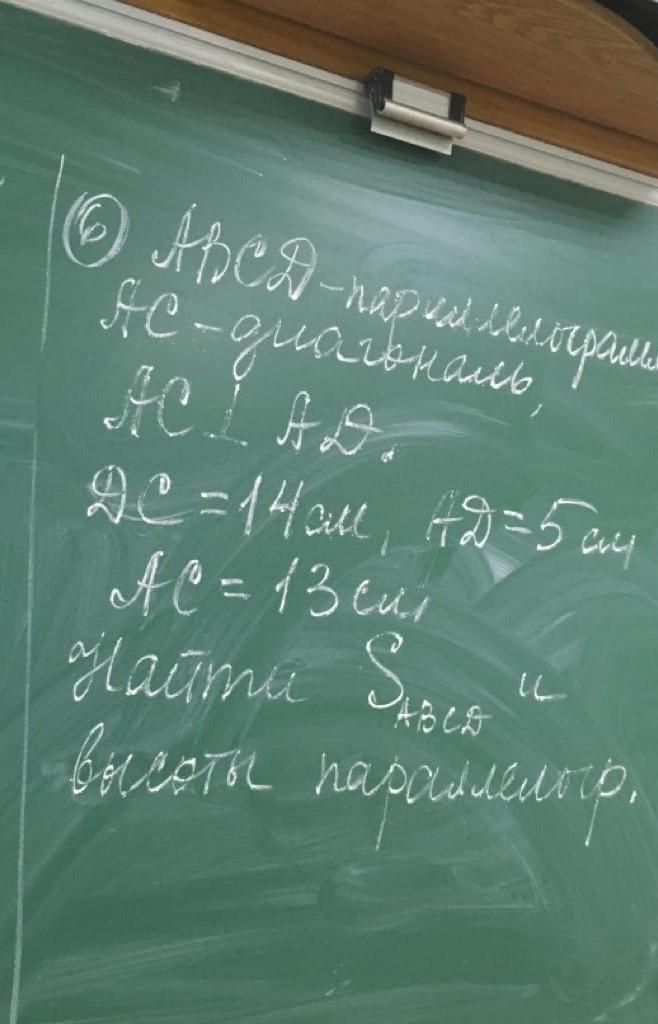 6 ABCD - параллелограмм
AC - диагональ,
AC ⊥ AD.
DC = 14 см, AD = 5 см
AC = 13 см,
Найти S ABCD и
высоты параллелогр.